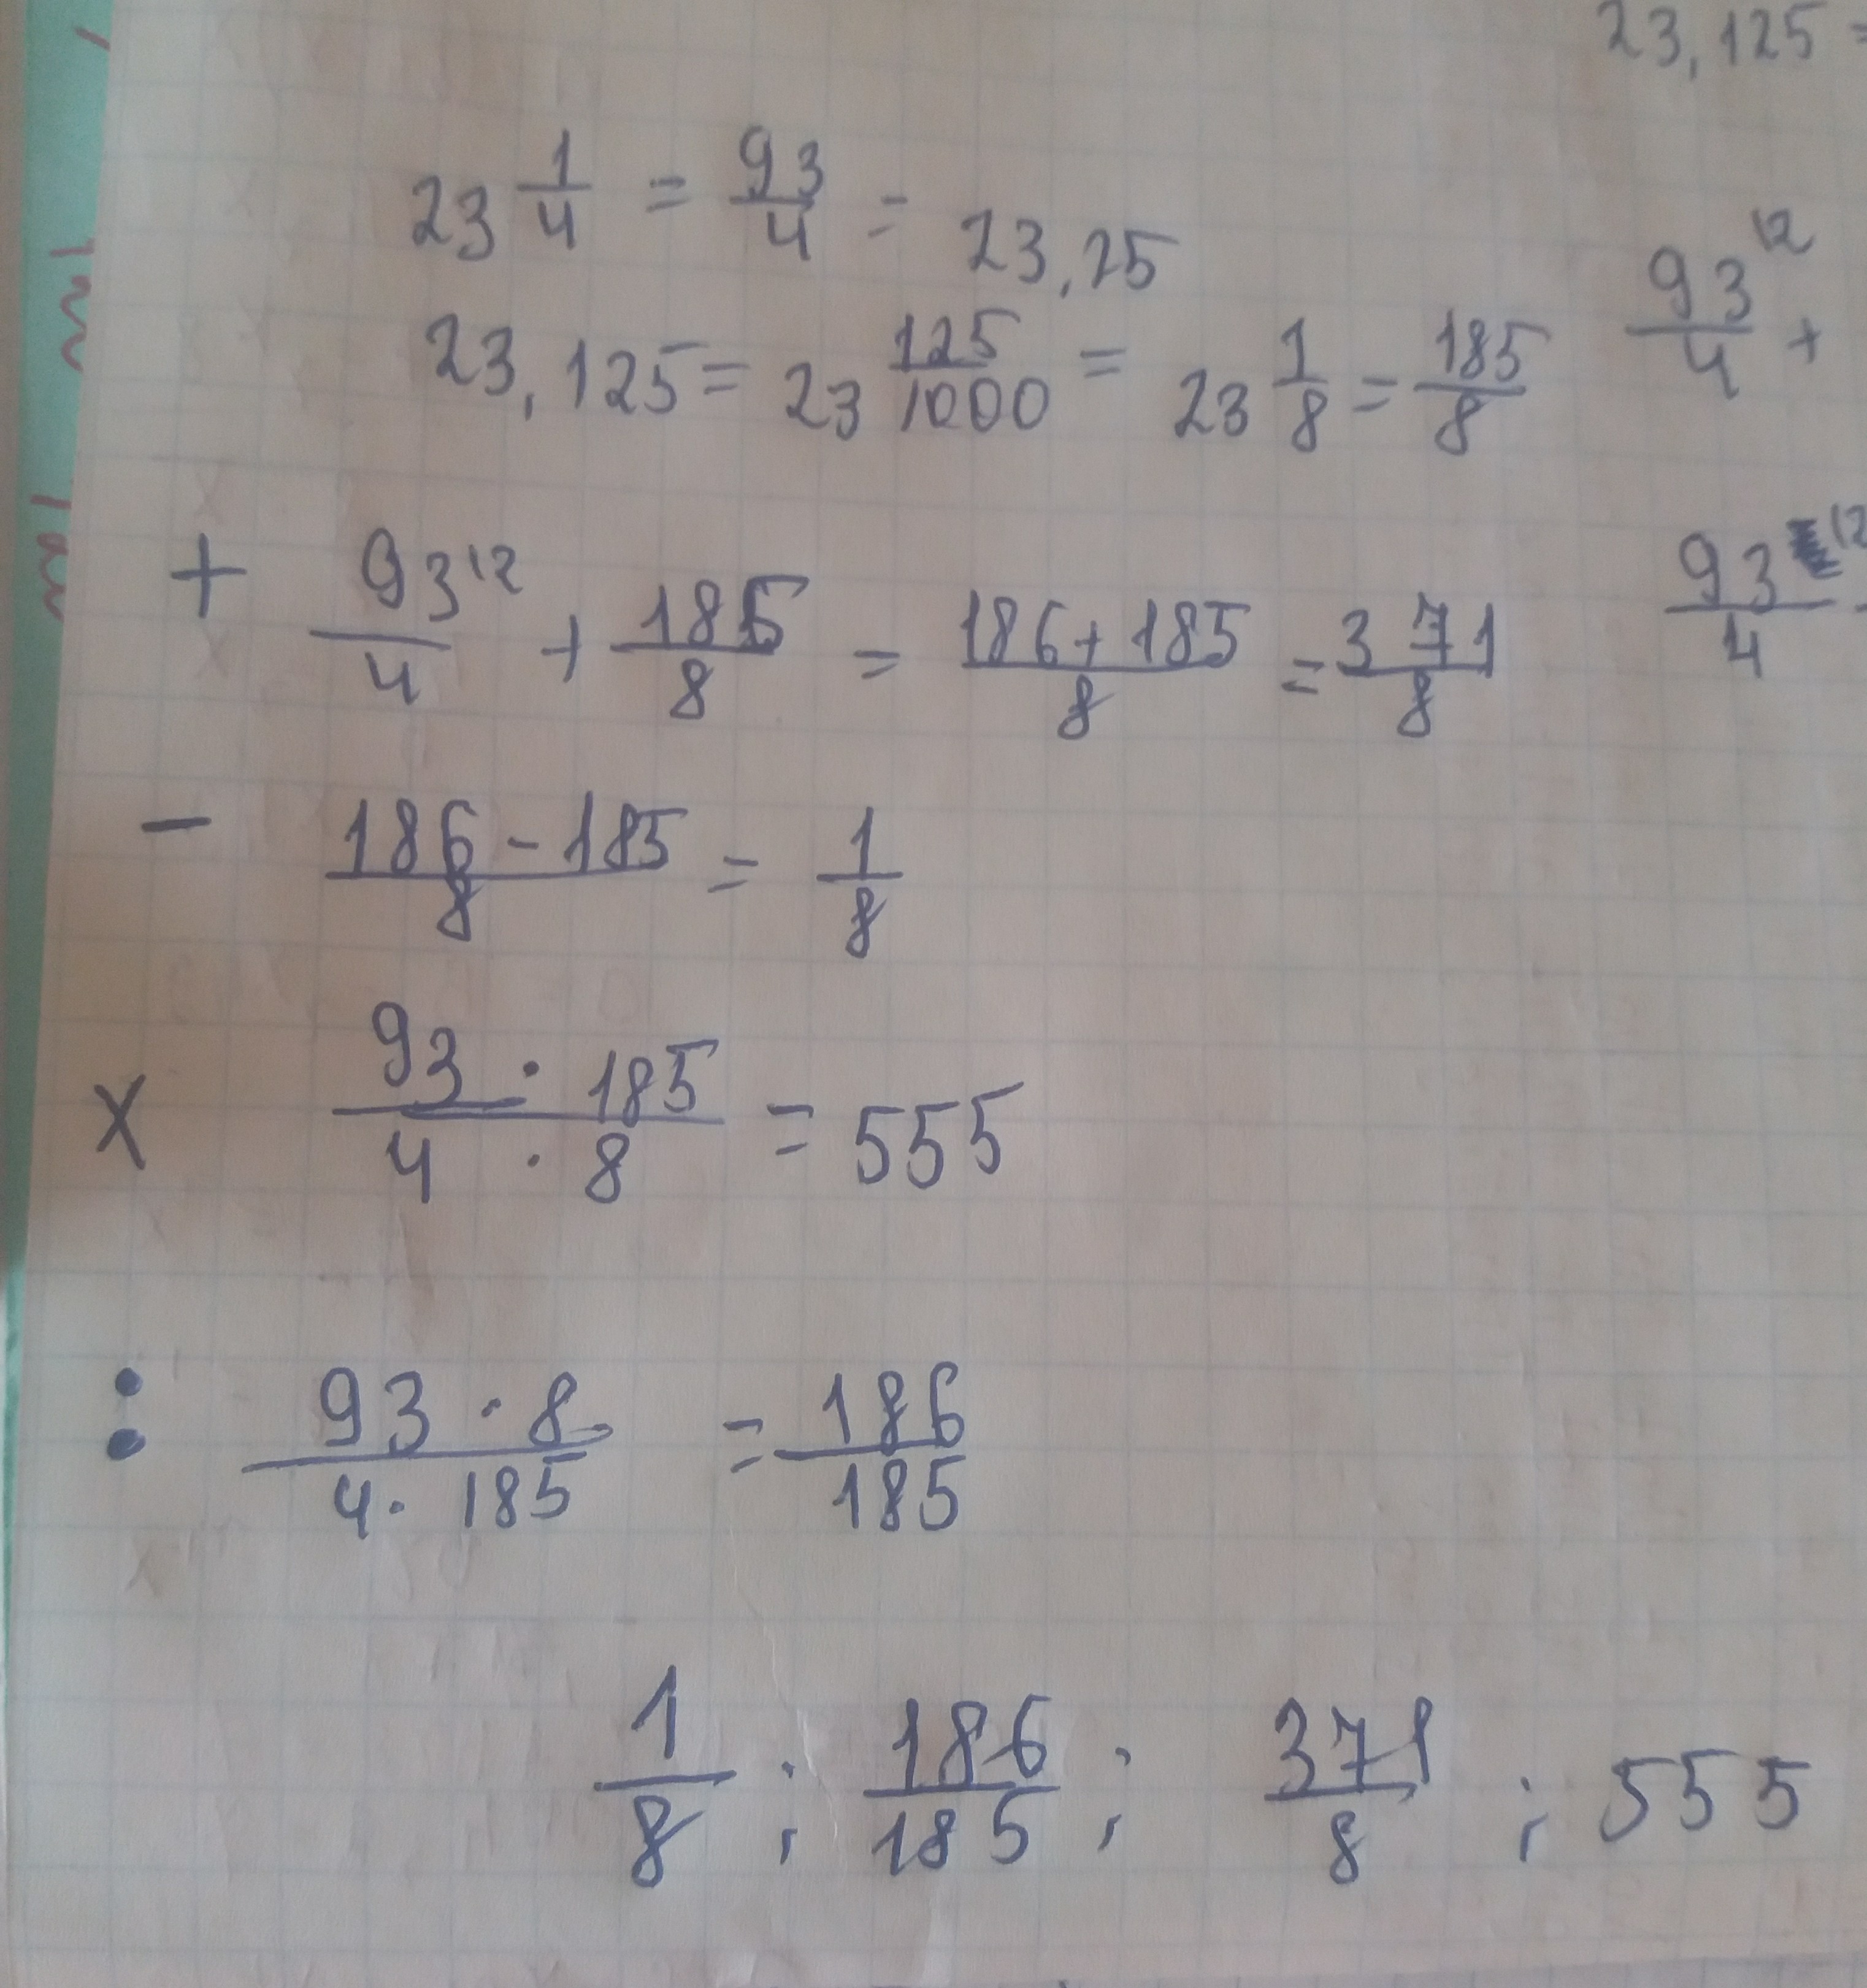 23,125 =
23 1/4 = 93/4 = 23,25
23,125 = 23 125/1000 = 23 1/8 = 185/8
93\2/4 +
+ 93\2/4 + 185/8 = 186+185/8 = 371/8
93\2/4
- 186-185/8 = 1/8
X 93 · 185/4 · 8 = 555
: 93 · 8/4 · 185 = 186/185
1/8 ; 186/185 ; 371/8 ; 555